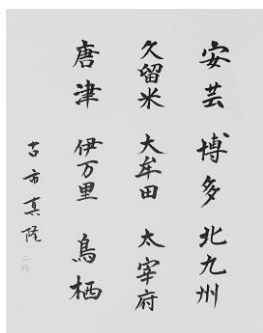 安芸 博多 北九州
久留米 大牟田 太宰府
唐津 伊万里 鳥栖
古市真隆
二段